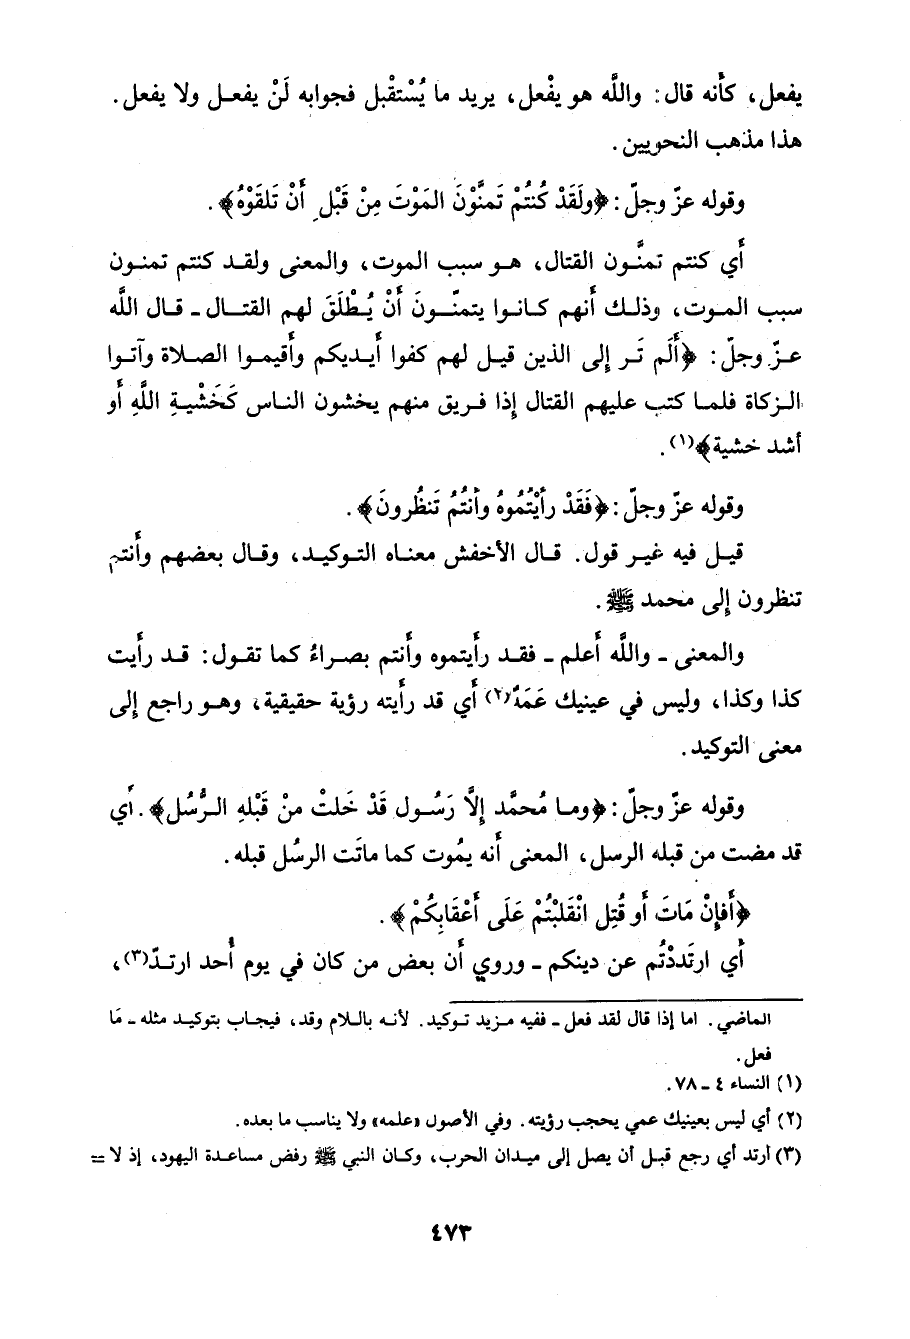 يفعل، كأنه قال: واللَّه هو يفْعل، يريد ما يُسْتقْبل فجوابه لَنْ يفعل ولا يفعل.
هذا مذهب النحويين.
وقوله عزّ وجلّ: ﴿ولَقَدْ كُنتُمْ تَمنَّوْنَ المَوْتَ مِنْ قَبْلِ أَنْ تَلقَوْهُ﴾.
أَي كنتم تمنَّون القتال، هو سبب الموت، والمعنى ولقد كنتم تمنون
سبب الموت، وذلك أَنهم كانوا يتمنّونَ أَنْ يُطْلَقَ لهم القتال ـ قال اللَّه
عزّ وجلّ: ﴿أَلَم تَر إلى الذين قيل لهم كفوا أَيديكم وأَقيموا الصلاة وآتوا
الزكاة فلما كتب عليهم القتال إذا فريق منهم يخشون الناس كَخَشْيةِ اللَّهِ أَو
أشد خشية﴾(١).
وقوله عزّ وجلّ: ﴿فَقَدْ رأَيْتُمُوهُ وأَنتُمُ تَنظُرونَ﴾.
قيل فيه غير قول. قال الأخفش معناه التوكيد، وقال بعضهم وأَنتم
تنظرون إلى محمد ﷺ.
والمعنى ـ واللَّه أَعلم ـ فقد رأَيتموه وأَنتم بصراءُ كما تقول: قد رأَيت
كذا وكذا، وليس في عينيك عَمَهٌ(٢) أَي قد رأَيته رؤية حقيقية، وهو راجع إلى
معنى التوكيد.
وقوله عزّ وجلّ: ﴿وما مُحمَّد إلاَّ رَسُول قَدْ خَلتْ منْ قَبْلهِ الرُّسُل﴾. أَي
قد مضت من قبله الرسل، المعنى أَنه يمُوت كما ماتَت الرسُل قبله.
﴿أَفَإنْ مَاتَ أَو قُتِل انْقَلبْتُمْ عَلَى أَعْقَابِكُمْ﴾.
أَي ارتَددْتُم عن دينكم ـ وروي أَن بعض من كان في يوم أُحد ارتدّ(٣)،
الماضي. اما إذا قال لقد فعل ـ ففيه مزيد توكيد. لأنه باللام وقد، فيجاب بتوكيد مثله ـ مَا
فعل.
(١) النساء ٤ ـ ٧٨.
(٢) أي ليس بعينيك عمي يحجب رؤيته. وفي الأصول «علمه» ولا يناسب ما بعده.
(٣) أرتد أي رجع قبل أن يصل إلى ميدان الحرب، وكان النبي ﷺ رفض مساعدة اليهود، إذ لا =
٤٧٣